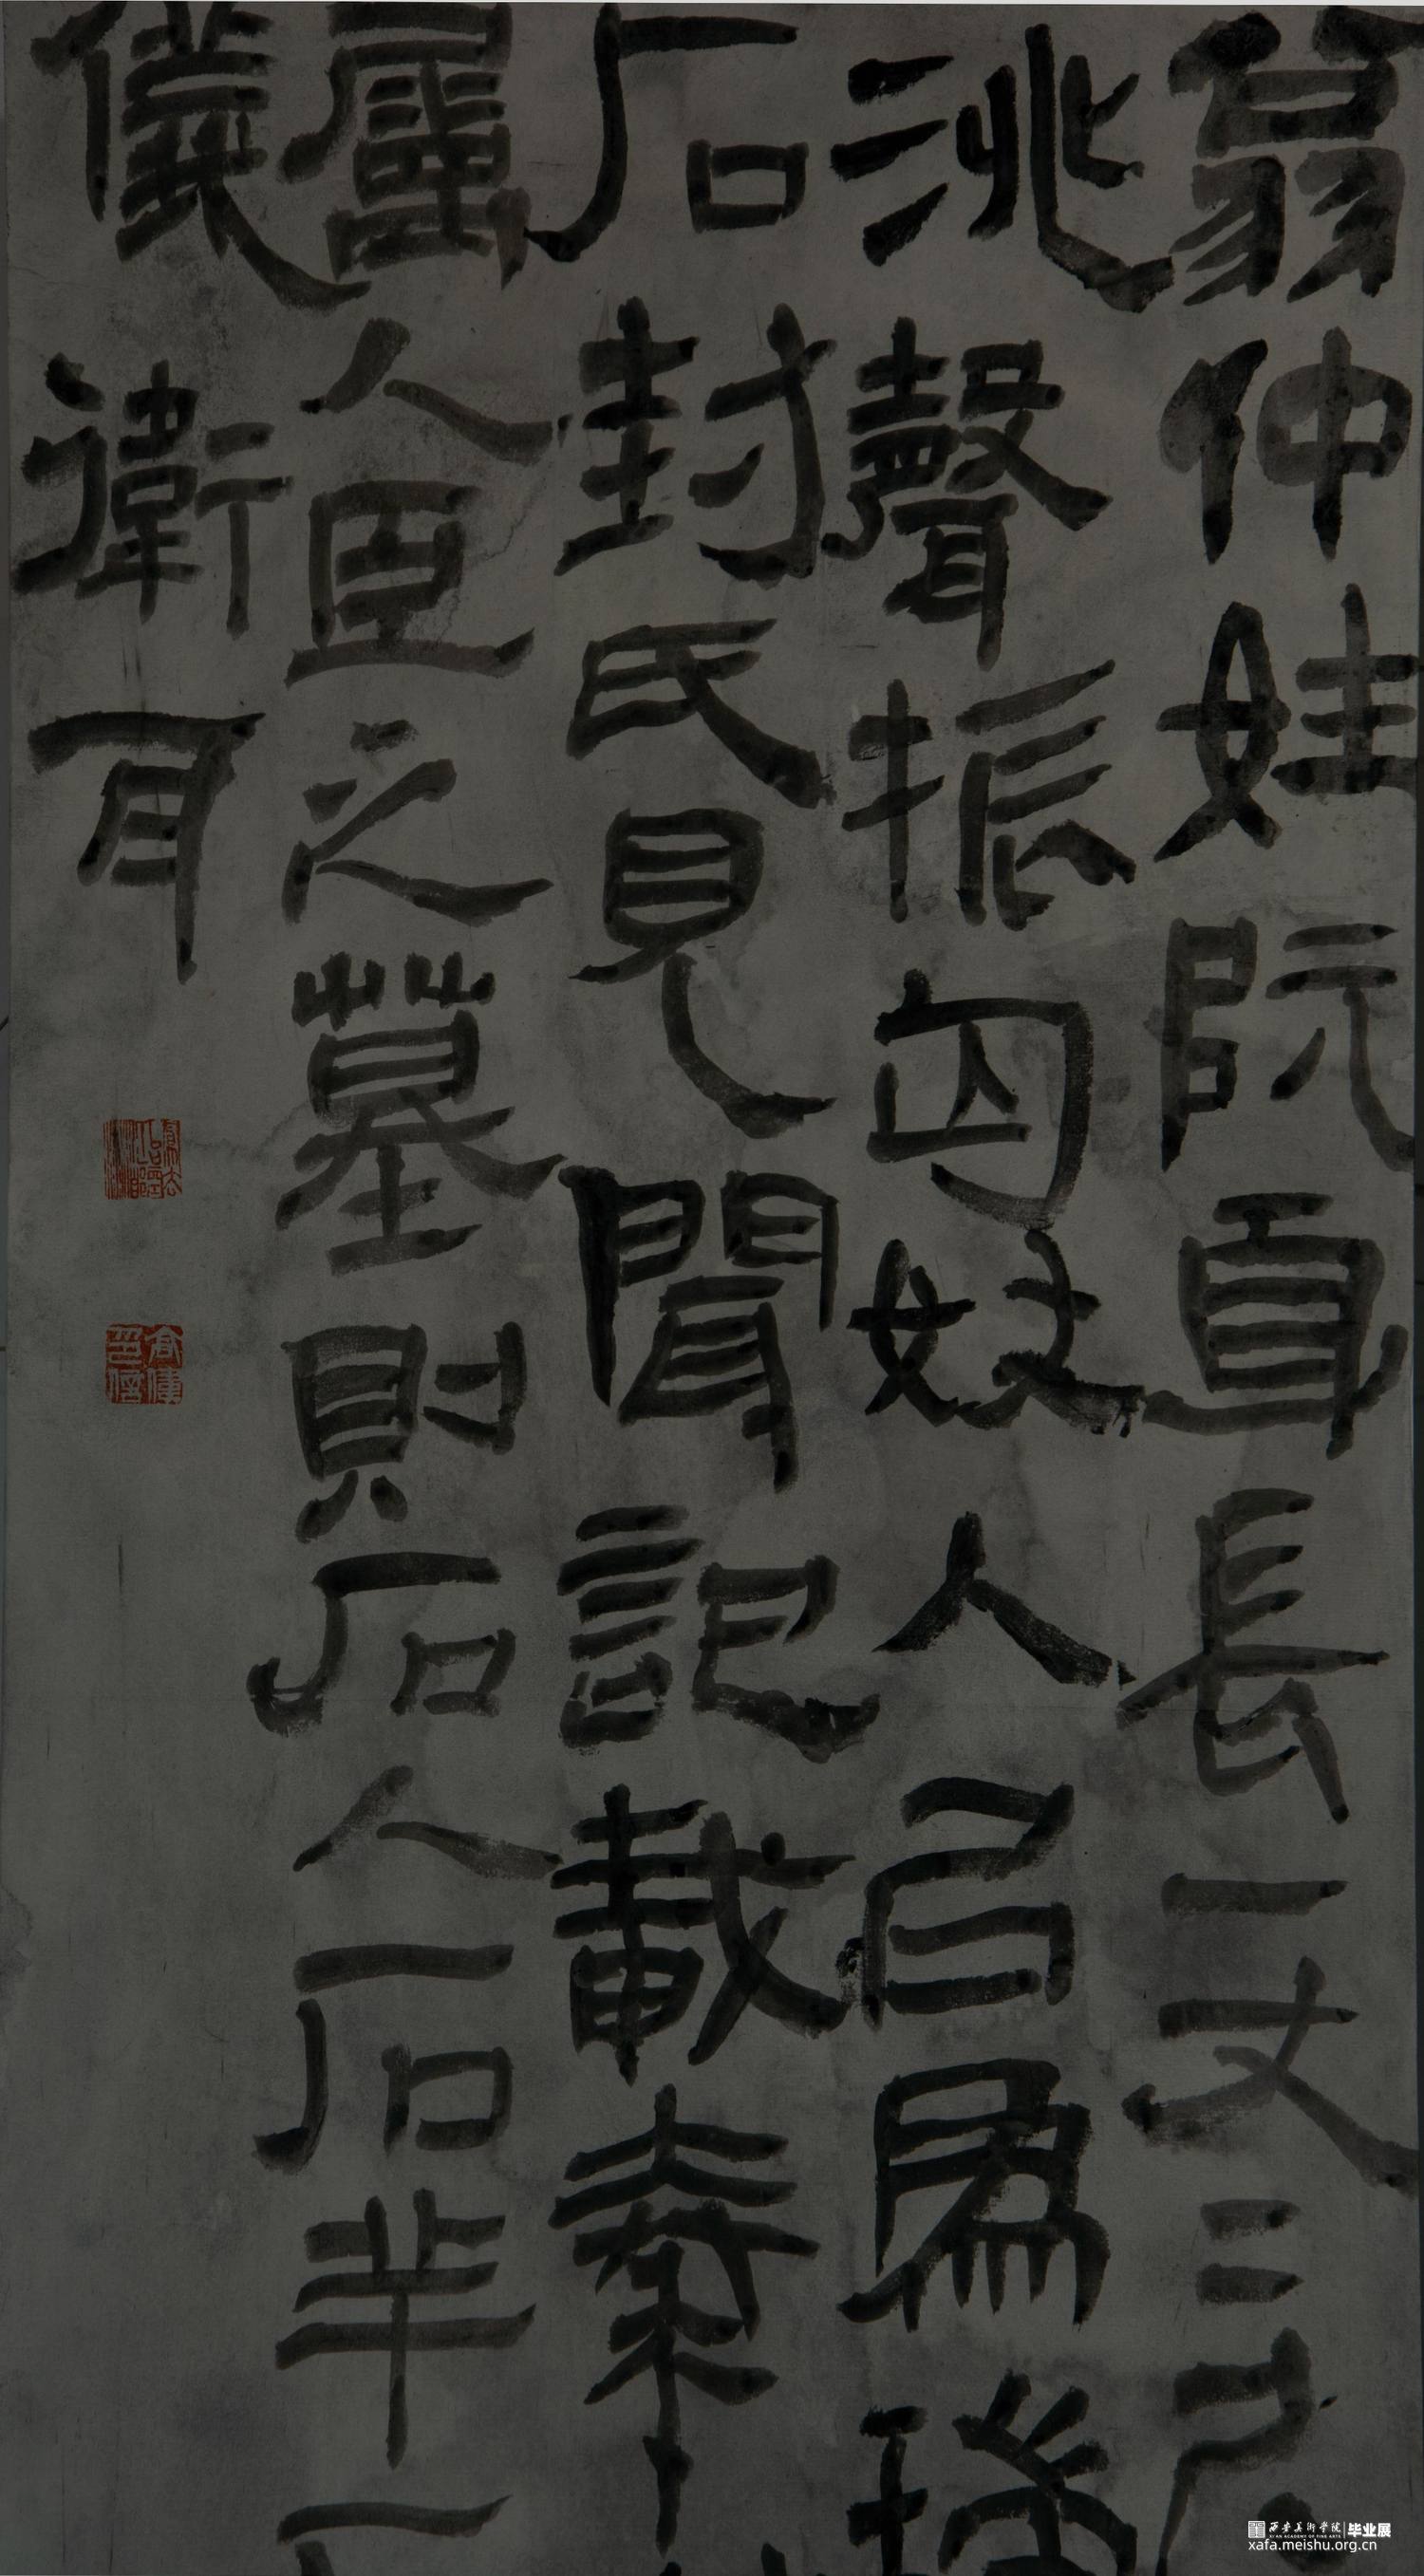 翁仲姓阮身長一丈三尺
洮聲振匈奴人以爲瑞
石封氏見聞記載秦
屬人臣之墓則石人石羊
儀衛耳
西安美术学院 毕业展
XI'AN ACADEMY OF FINE ARTS
xafa.meishu.org.cn